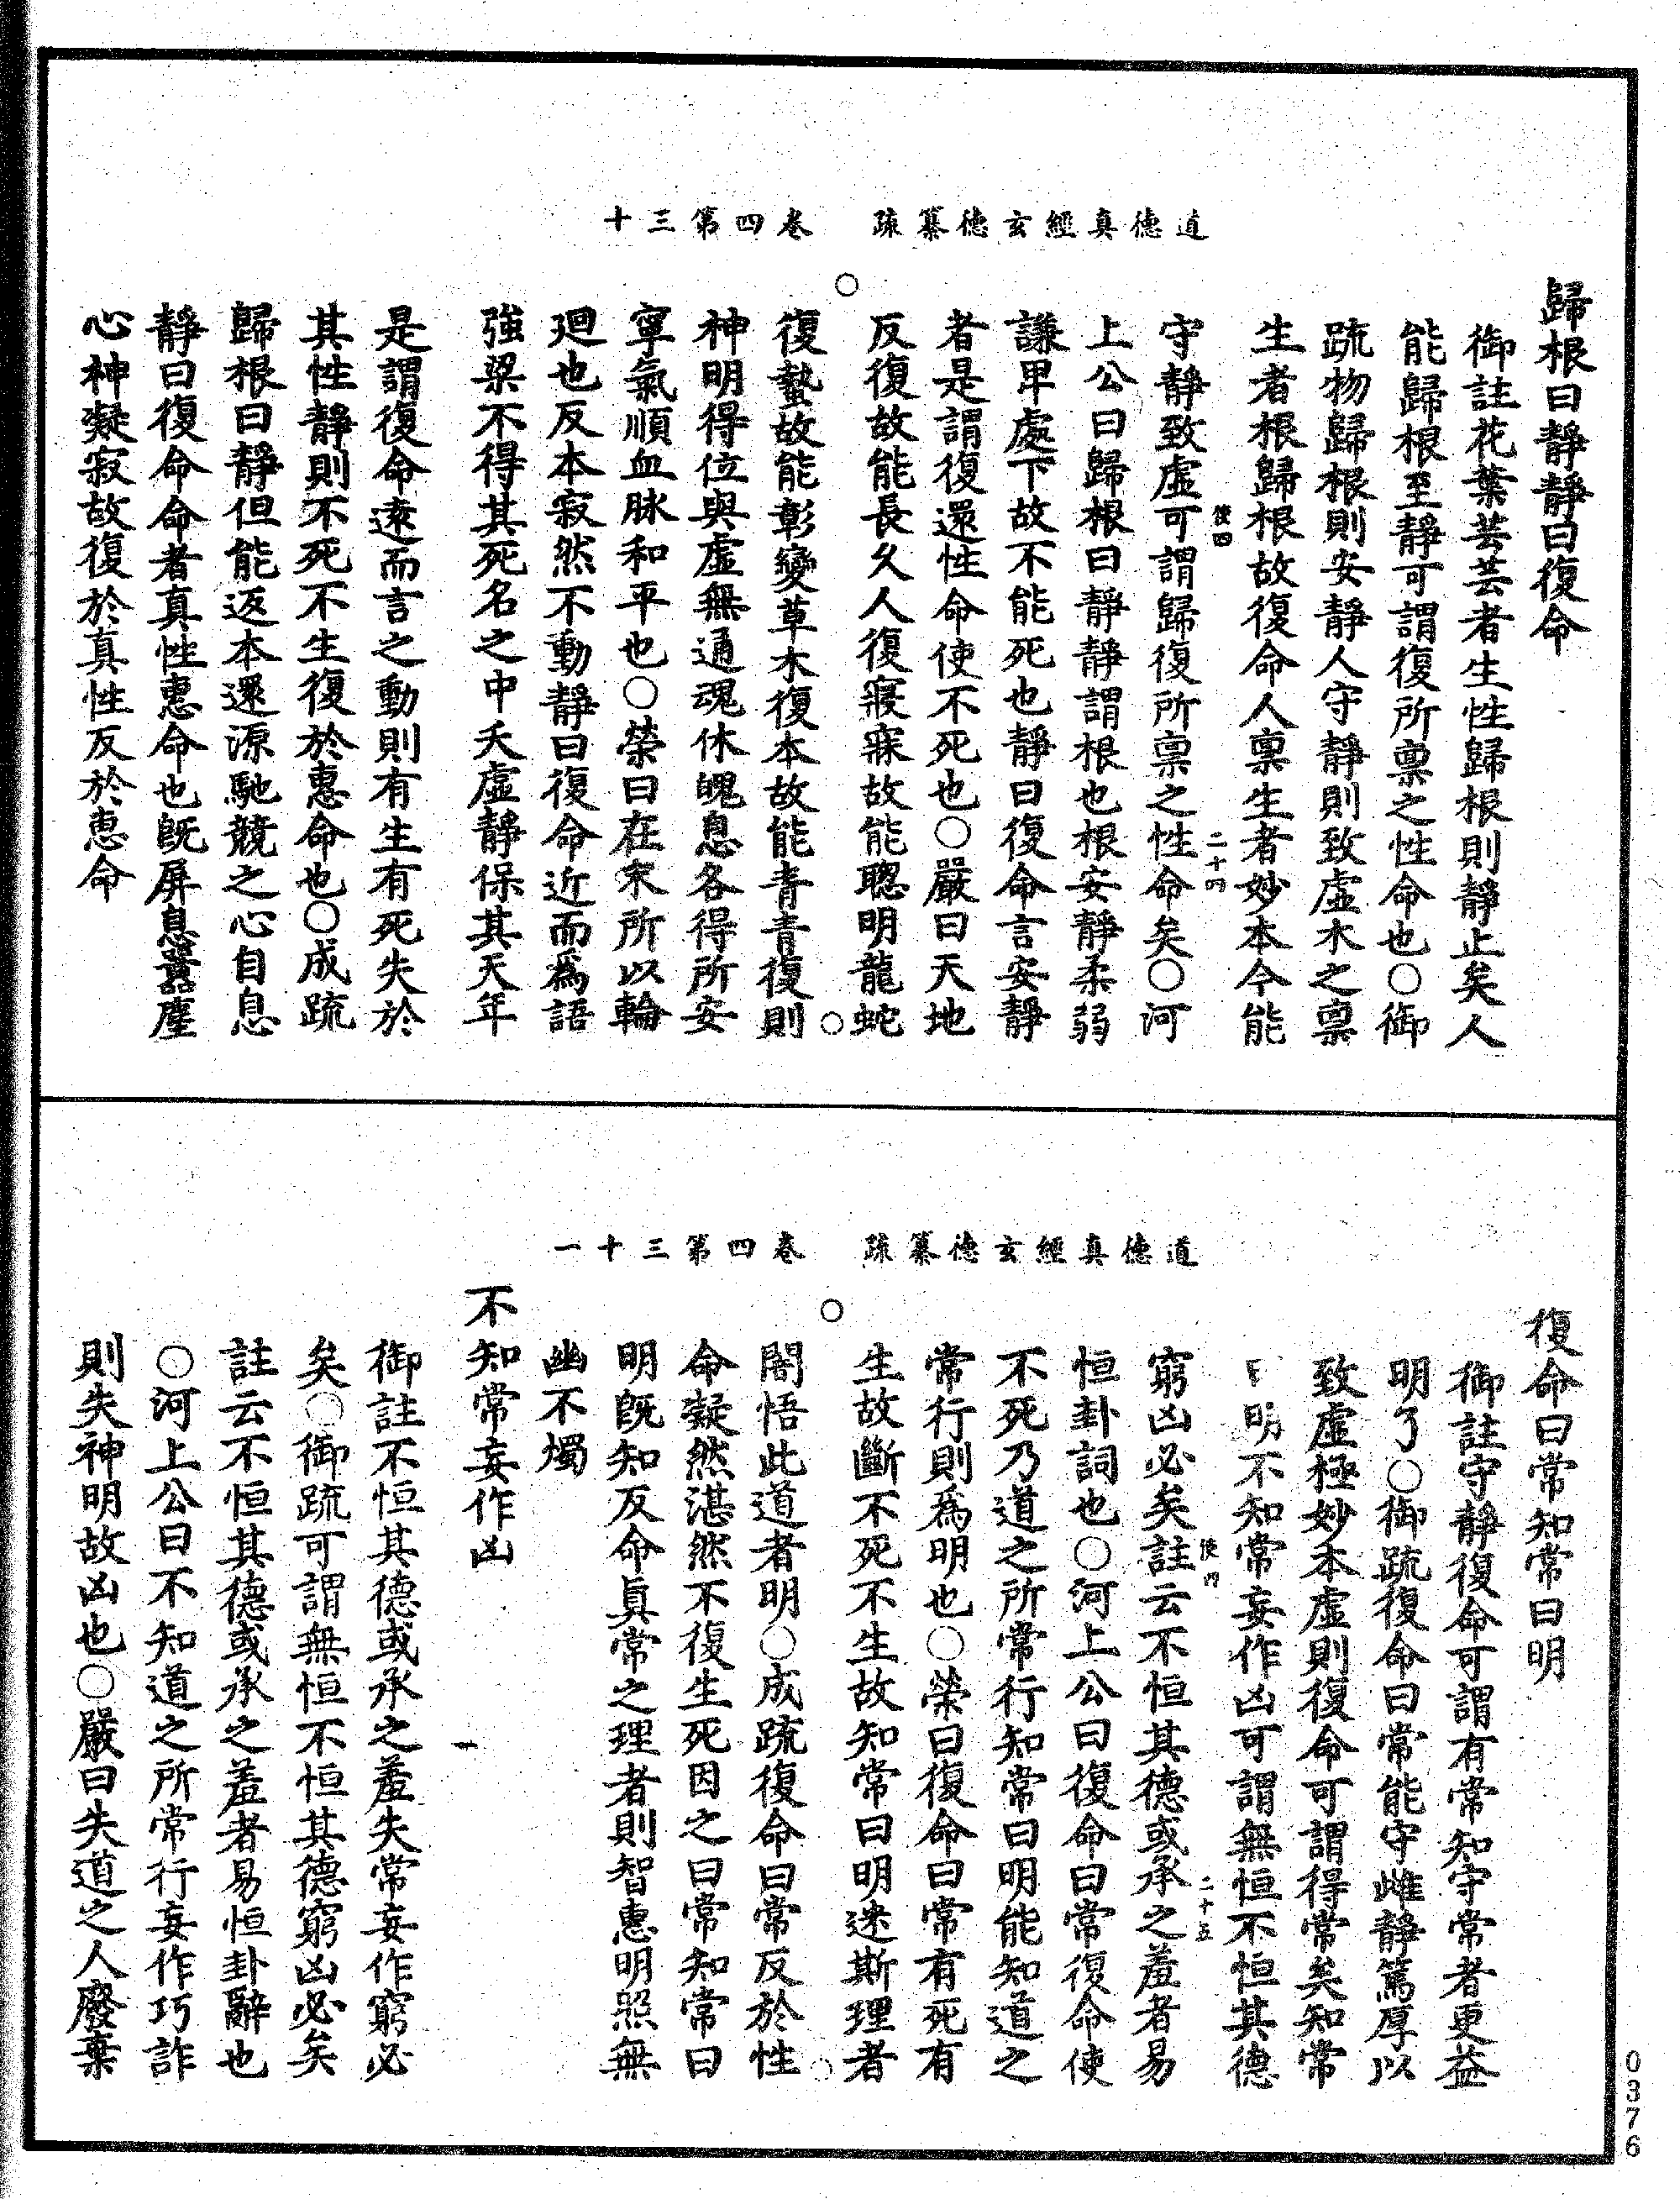 道德真經玄德纂疏　卷四第三十
歸根曰靜靜曰復命
御註花葉芸芸者生性歸根則靜止矣人
能歸根至靜可謂復所稟之性命也○御
疏物歸根則安靜人守靜則致虛木之稟
生者根歸根故復命人稟生者妙本今能
使四　二十四
守靜致虛可謂歸復所稟之性命矣○河
上公曰歸根曰靜靜謂根也根安靜柔弱
謙卑處下故不能死也靜曰復命言安靜
者是謂復還性命使不死也○嚴曰天地
反復故能長久人復寢寐故能聰明龍蛇
復蟄故能彰變草木復本故能青青復則
神明得位與虛無通魂休魄息各得所安
寧氣順血脉和平也○榮曰在末所以輪
迴也反本寂然不動靜曰復命近而為語
強梁不得其死名之中夭虛靜保其天年
是謂復命遠而言之動則有生有死失於
其性靜則不死不生復於惠命也○成疏
歸根曰靜但能返本還源馳競之心自息
靜曰復命命者真性惠命也既屏息囂塵
心神凝寂故復於真性反於惠命
道德真經玄德纂疏　卷四第三十一
復命曰常知常曰明
御註守靜復命可謂有常知守常者更益
明了○御疏復命曰常能守雌靜篤厚以
致虛極妙本虛則復命可謂得常矣知常
明不知常妄作凶可謂無恒不恒其德
使　二十五
窮凶必矣註云不恒其德或承之羞者易
恒卦詞也○河上公曰復命曰常復命使
不死乃道之所常行知常曰明能知道之
常行則為明也○榮曰復命曰常有死有
生故斷不死不生故知常曰明迷斯理者
闇悟此道者明○成疏復命曰常反於性
命凝然湛然不復生死因之曰常知常曰
明既知反命真常之理者則智惠明照無
幽不燭
不知常妄作凶
御註不恒其德或承之羞失常妄作窮必
矣○御疏可謂無恒不恒其德窮凶必矣
註云不恒其德或承之羞者易恒卦辭也
○河上公曰不知道之所常行妄作巧詐
則失神明故凶也○嚴曰失道之人廢棄
0376